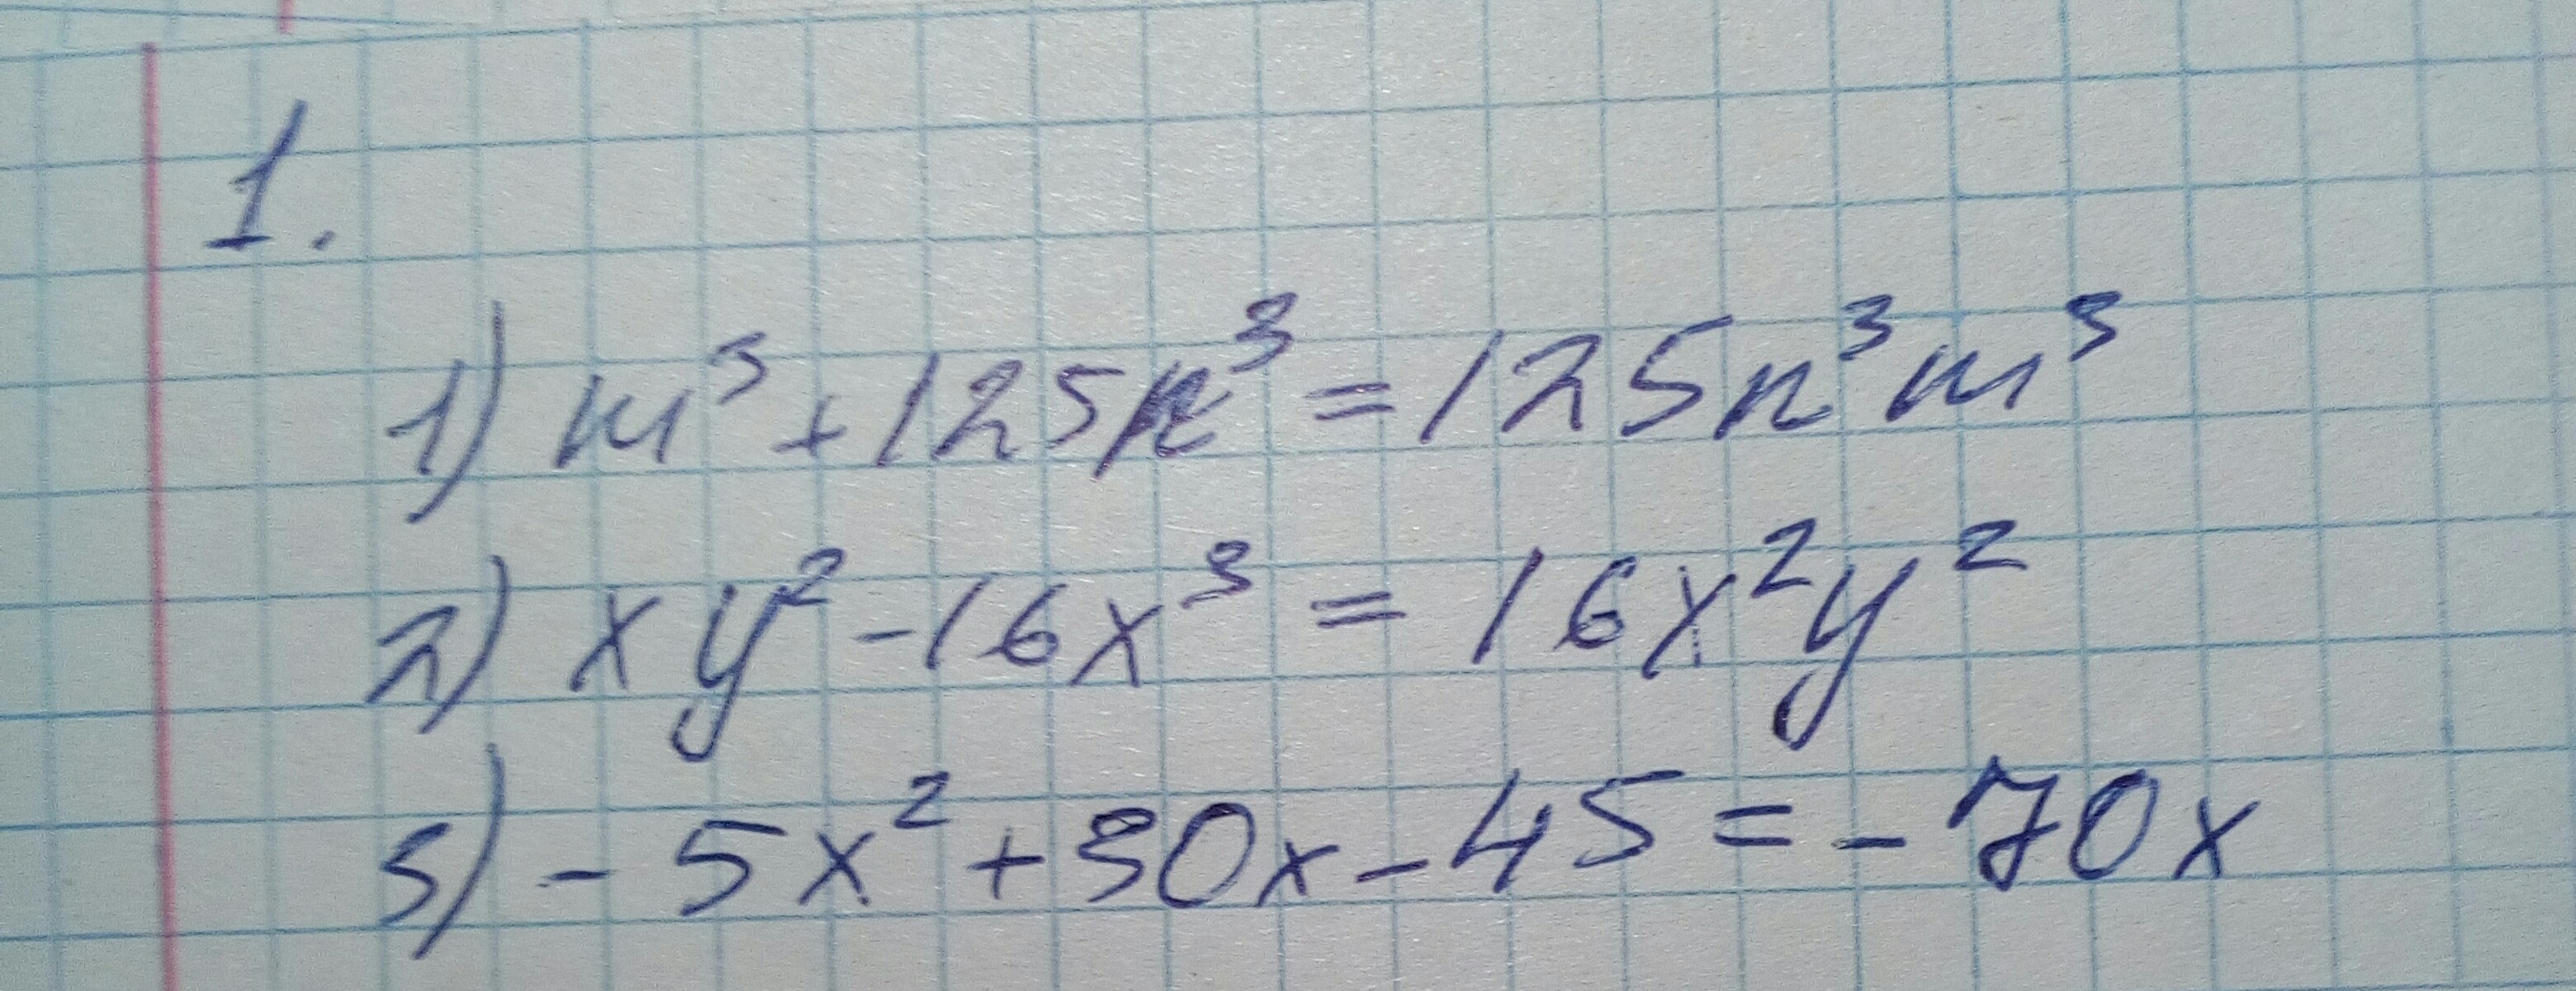 1.
1) m³+125n³=125n³m³
2) xy²-16x³=16x²y²
3) -5x²+30x-45=-70x